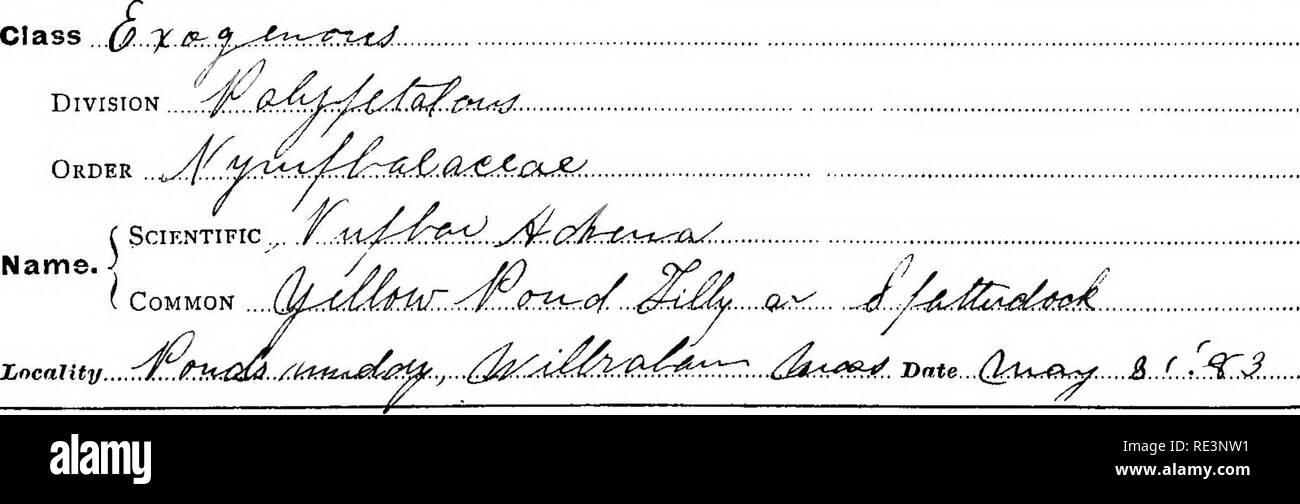 Class Exogenous
Division Polypetalous
Order Nymphaeaceae
Name. Scientific Nuphar Advena
Common Yellow Pond Lilly or Spatterdock
Locality Ponds muddy, Wilbraham Mass Date May 31'. 83
alamy
Image ID: RE3NW1
www.alamy.com